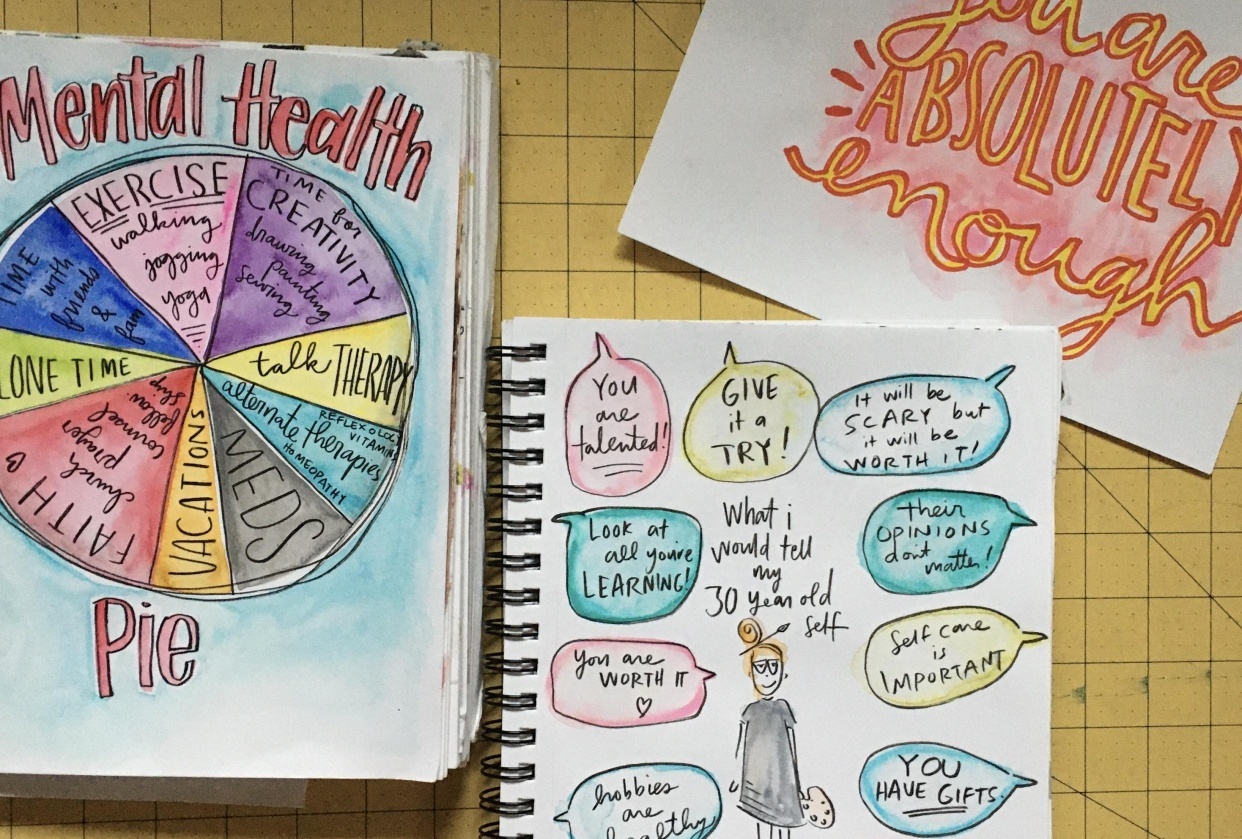 Mental Health
EXERCISE
walking
jogging
yoga
TIME for
CREATIVITY
drawing
painting
sewing
talk THERAPY
alternate therapies
REFLEXOLOGY
VITAMINS
HOMEOPATHY
MEDS
VACATIONS
FAITH
church
prayer
counsel
fellow
ship
LONE TIME
TIME
with
friends
&
fam
Pie
you are
ABSOLUTELY
enough
YOU
are
talented!
GIVE
it a
TRY!
It will be
SCARY but
it will be
WORTH IT!
Look at
all you're
LEARNING!
What i
would tell
my
30 year old
self
their
OPINIONS
don't
matter!
you are
WORTH IT
Self care
is
IMPORTANT
hobbies
are
healthy
YOU
HAVE GIFTS.